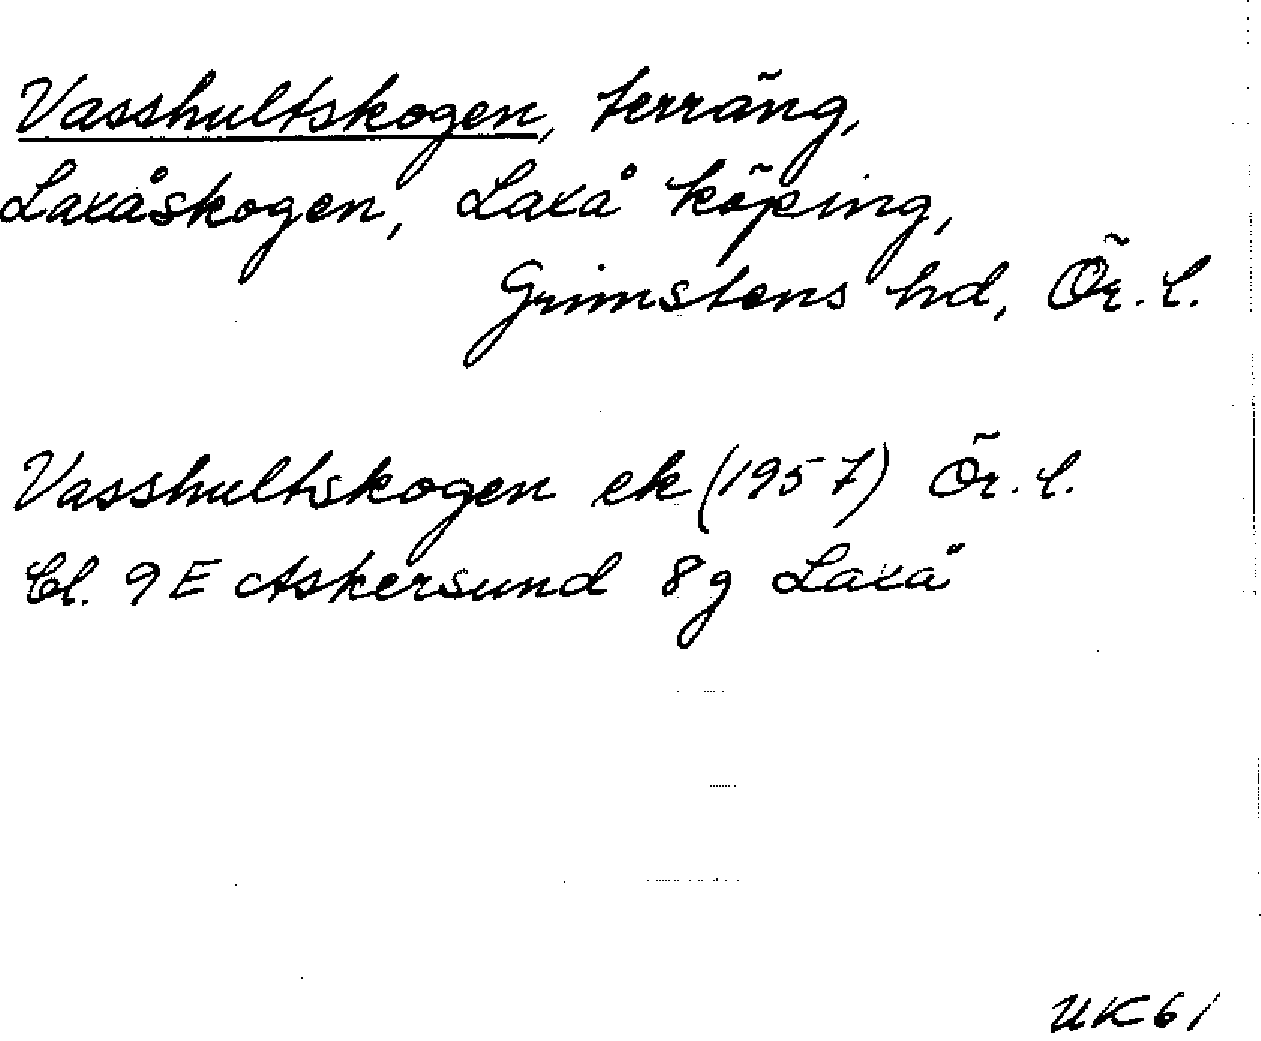 Vasshultskogen, terräng,
Laxåskogen, Laxå köping,
Grimstens hd, Ör. l.
Vasshultskogen ek (1957) Ör. l.
Bl. 9 E Askersund 8 g Laxå
UK 61